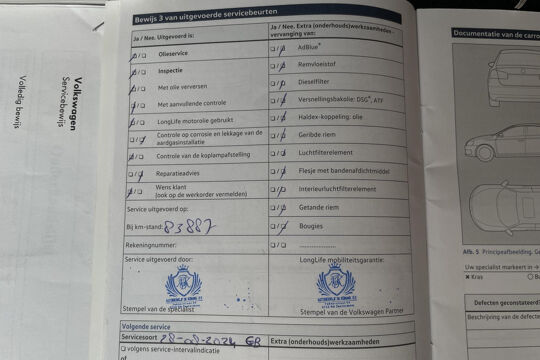 Bewijs 3 van uitgevoerde servicebeurten
Ja / Nee. Uitgevoerd is:
☐/☐ Olieservice
☐/☐ Inspectie
☐/☐ Met olie verversen
☐/☐ Met aanvullende controle
☐/☐ LongLife motorolie gebruikt
☐/☐ Controle op corrosie en lekkage van de
aardgasinstallatie
☐/☐ Controle van de koplampafstelling
☐/☐ Reparatieadvies
☐/☐ Wens klant
(ook op de werkorder vermelden)
Service uitgevoerd op:
Bij km-stand: 83887
Rekeningnummer:
Service uitgevoerd door:
Stempel van de specialist
Ja / Nee. Extra (onderhouds)werkzaamheden -
vervanging van:
☐/☐ AdBlue®
☐/☐ Remvloeistof
☐/☐ Dieselfilter
☐/☐ Versnellingsbakolie: DSG®, ATF
☐/☐ Haldex-koppeling: olie
☐/☐ Geribde riem
☐/☐ Luchtfilterelement
☐/☐ Flesje met bandenafdichtmiddel
☐/☐ Interieurluchtfilterelement
☐/☐ Getande riem
☐/☐ Bougies
☐/☐ ....................
LongLife mobiliteitsgarantie:
Stempel van de Volkswagen Partner
Volgende service
Servicesoort 28-08-2024 GB
☐ volgens service-intervalindicatie
of
Extra (onderhouds)werkzaamheden
Volkswagen
Servicebewijs
Volledig bewijs
Documentatie van de carro
Afb. 5 Principeafbeelding. Ge
Uw specialist markeert in →
✕ Kras
Defecten geconstateerd
Beschrijving van de defecten